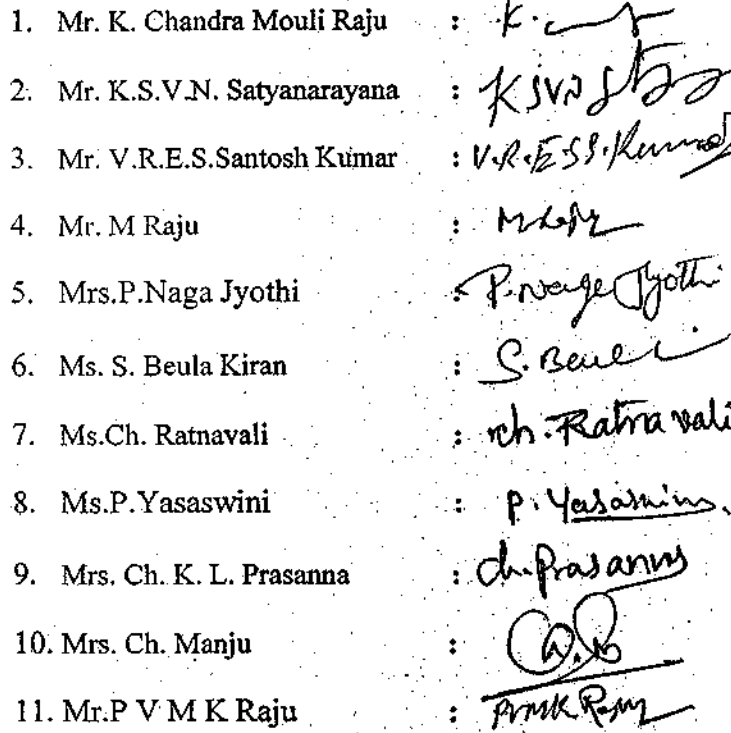 1. Mr. K. Chandra Mouli Raju : K.
2. Mr. K.S.V.N. Satyanarayana : KSVN
3. Mr. V.R.E.S.Santosh Kumar : V.R.E.S.S.Kumar
4. Mr. M Raju : M Raju
5. Mrs.P.Naga Jyothi : P.Naga Jyothi
6. Ms. S. Beula Kiran : S. Beul
7. Ms.Ch. Ratnavali : ch. Ratna vali
8. Ms.P.Yasaswini : P. Yasaswini
9. Mrs. Ch. K. L. Prasanna : Ch. Prasanna
10. Mrs. Ch. Manju :
11. Mr.P V M K Raju : PVMK Raju